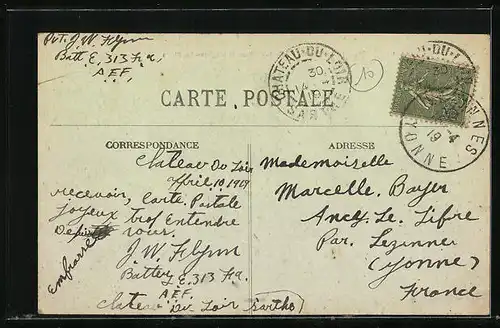 Pvt. J. W. Flynn
Batt E, 313 F.A,
A.E.F.
CHATEAU-DU-LOIR
30
SARTHE
10
CARTE POSTALE
CORRESPONDANCE
ADRESSE
Chateau Du Loir
April 10, 1919
recevoir, Carte. Postale
Joyeux trof Entendre
vous.
J. W. Flynn
Battery E, 313 F.A.
A.E.F.
Chateau Du Loir Sartho
Embrasser
Mademoiselle
Marcelle, Bayer
Ancy. Le. Libre
Par. Lezinnes
(Yonne)
France
YONNE
19-4